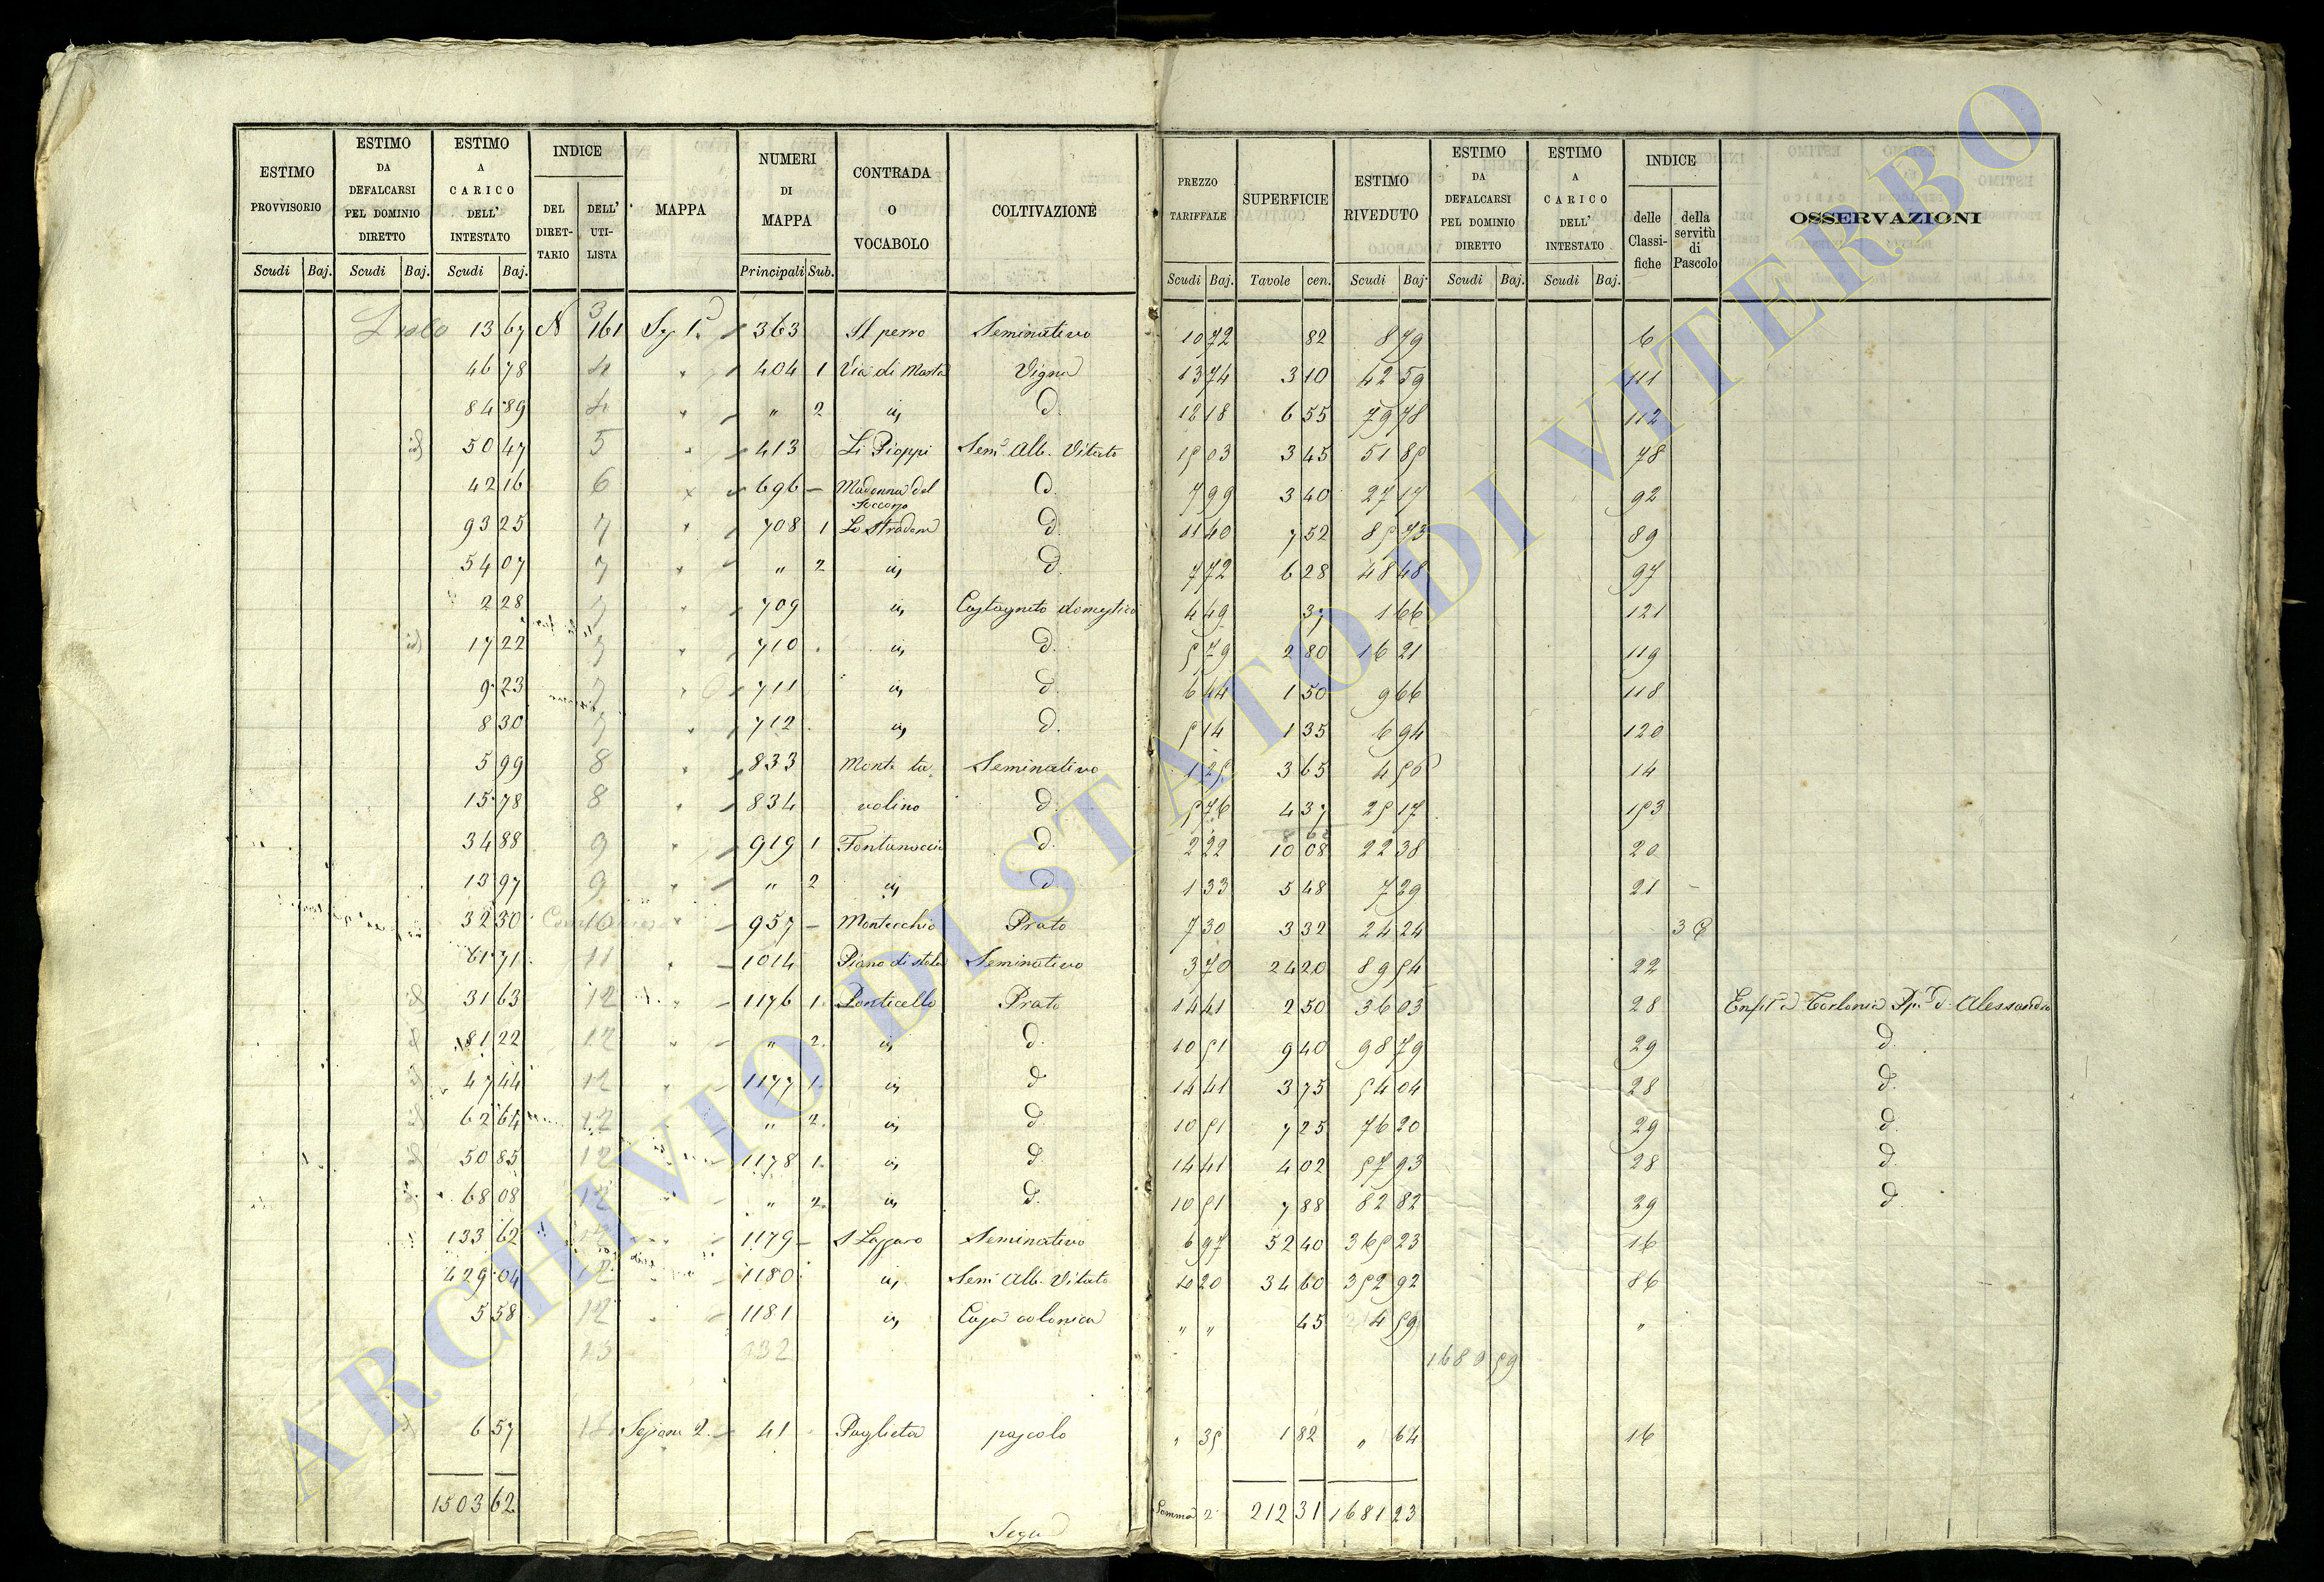 ESTIMO PROVVISORIO Scudi Baj.
ESTIMO DA DEFALCARSI PEL DOMINIO DIRETTO Scudi Baj.
ESTIMO A CARICO DELL' INTESTATO Scudi Baj.
INDICE DEL DIRETTARIO DELL' UTILISTA
MAPPA
NUMERI DI MAPPA Principali Sub.
CONTRADA O VOCABOLO
COLTIVAZIONE
PREZZO TARIFFALE Scudi Baj.
SUPERFICIE Tavole cen.
ESTIMO RIVEDUTO Scudi Baj.
ESTIMO DA DEFALCARSI PEL DOMINIO DIRETTO Scudi Baj.
ESTIMO A CARICO DELL' INTESTATO Scudi Baj.
INDICE delle Classifiche della servitù di Pascolo
OSSERVAZIONI
13 67 N 161 363 Seminativo 10 72 82 8 79 6
46 78 4 404 1 Via di Marta Vigna 13 74 3 10 42 59 111
84 89 4 " 2 d. 12 18 6 55 79 78 112
50 47 5 413 Li Pioppi Sem.o Alb. Vitato 15 03 3 45 51 85 78
42 16 6 696 Madonna del Soccorso d. 7 99 3 40 27 17 92
93 25 7 708 1 d. 11 40 7 52 85 73 89
54 07 7 " 2 d. 7 72 6 28 48 48 97
2 28 7 709 Castagneto domestico 4 49 37 1 66 121
17 22 7 710 d. 5 79 2 80 16 21 119
9 23 7 711 d. 6 44 1 50 9 66 118
8 30 7 712 d. 5 14 1 35 6 94 120
5 99 8 833 Monte ta Seminativo 1 25 3 65 4 56 14
15 78 8 834 volino d. 5 76 4 37 25 17 153
34 88 9 919 1 d. 2 22 10 08 22 38 20
13 97 9 " 2 d 1 33 5 48 7 29 21
32 30 10 957 Montecchio Prato 7 30 3 32 24 24 3
61 71 11 1014 Seminativo 3 70 24 20 89 54 22
31 63 12 1176 1 Ponticello Prato 14 41 2 50 36 03 28 Torlonia Alessandro
81 22 12 " 2 d. 10 51 9 40 98 79 29 d.
47 44 12 1177 1 d 14 41 3 75 54 04 28 d.
62 64 12 " 2 d. 10 51 7 25 76 20 29 d.
50 85 12 1178 1 d. 14 41 4 02 57 93 28 d.
68 08 12 " 2 d. 10 51 7 88 82 82 29 d.
133 62 12 1179 S Lazzaro Seminativo 6 97 52 40 365 23 16
429 04 12 1180 Sem Alb. Vitato 10 20 34 60 352 92 86
5 58 12 1181 Casa colonica " " 45 4 59 "
6 57 Sezione 2. 41 Paglieta pascolo " 35 1 82 " 64 16
1503 62 Somma 212 31 1681 23
Segue
ARCHIVIO DI STATO DI VITERBO